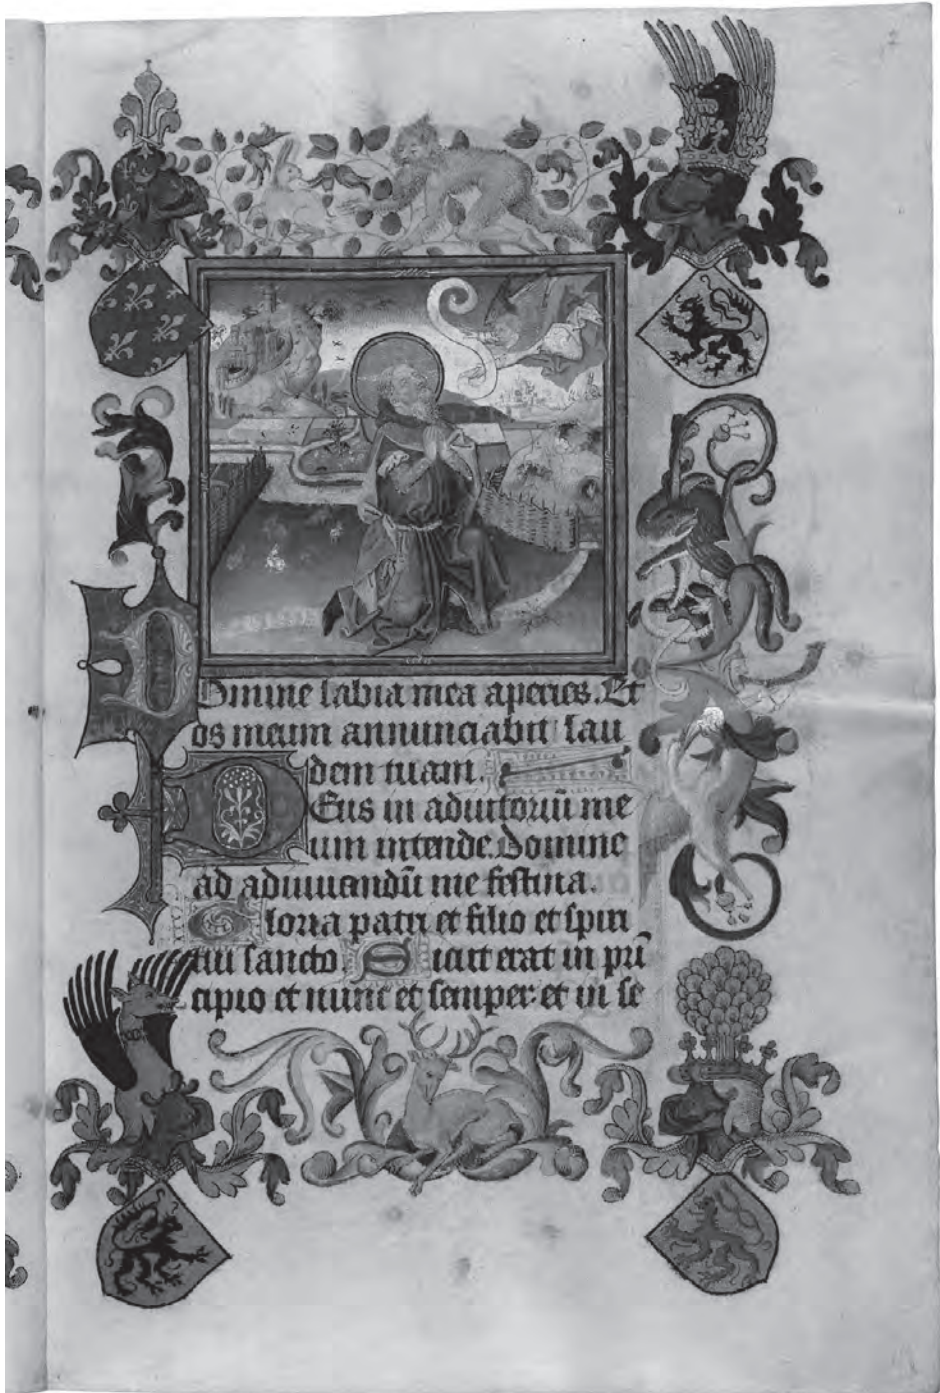 Domine labia mea aperies. Et
os meum annunciabit lau
dem tuam.
Deus in adiutoriū me
um intende. Domine
ad adiuuandū me festina.
Gloria patri et filio et spiri
tui sancto Sicut erat in prī
cipio et nunc et semper: et in se